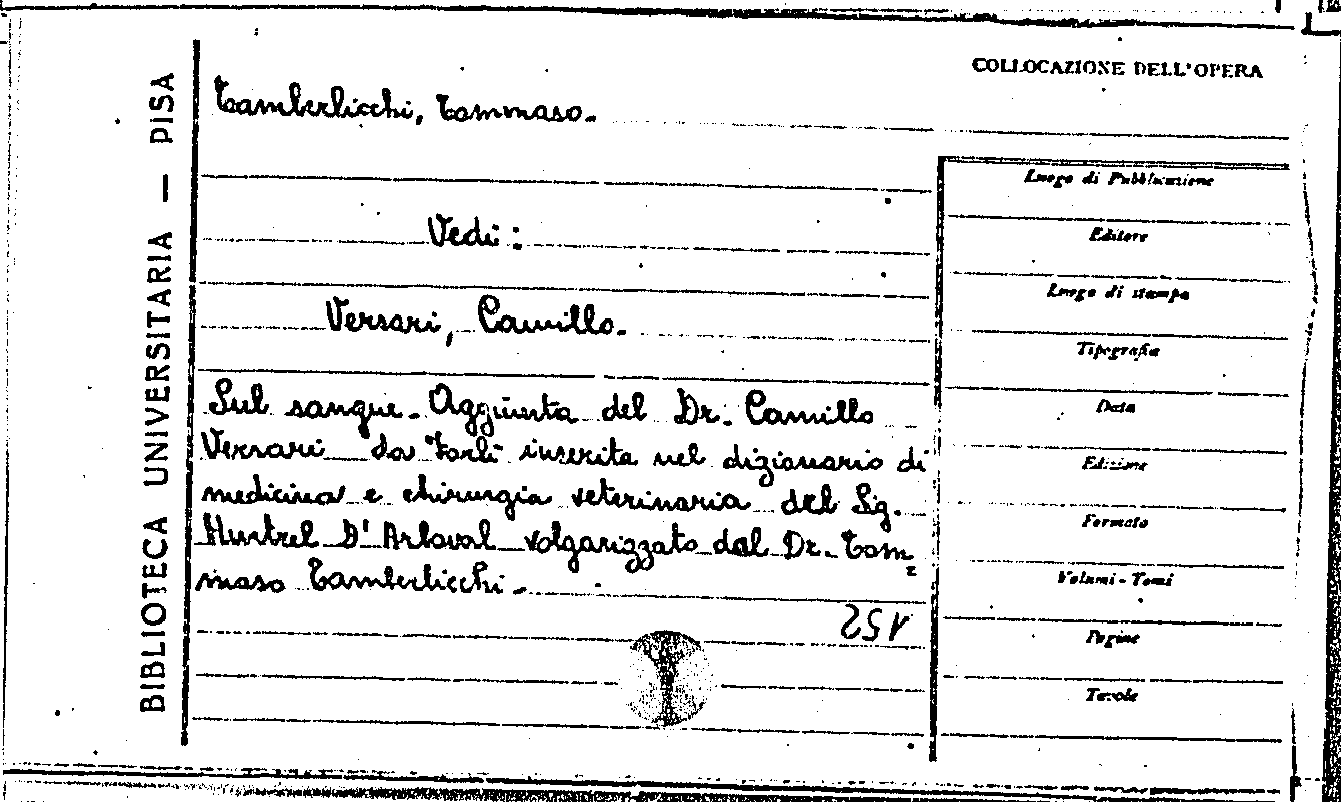 COLLOCAZIONE DELL'OPERA
BIBLIOTECA UNIVERSITARIA — PISA
Tamberlicchi, Tommaso.
Vedi:
Versari, Camillo.
Sul sangue. Aggiunta del Dr. Camillo
Versari da Forlì inserita nel dizionario di
medicina e chirurgia veterinaria del Sig.
Hurtrel D'Arboval volgarizzato dal Dr. Tom=
maso Tamberlicchi.
152
Luogo di Pubblicazione
Editore
Luogo di stampa
Tipografia
Data
Edizione
Formato
Volumi - Tomi
Pagine
Tavole